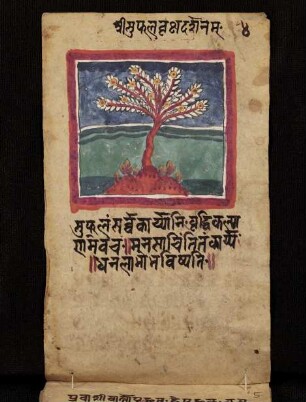 श्रीसुफलवृक्षदर्शनम्· ४
सुफलंसर्व्वकार्य्याणिवृद्धिकल्या
णमेवच॥मनसाचिंतितंकार्य्यं
॥धनलाभोभविष्यति॥